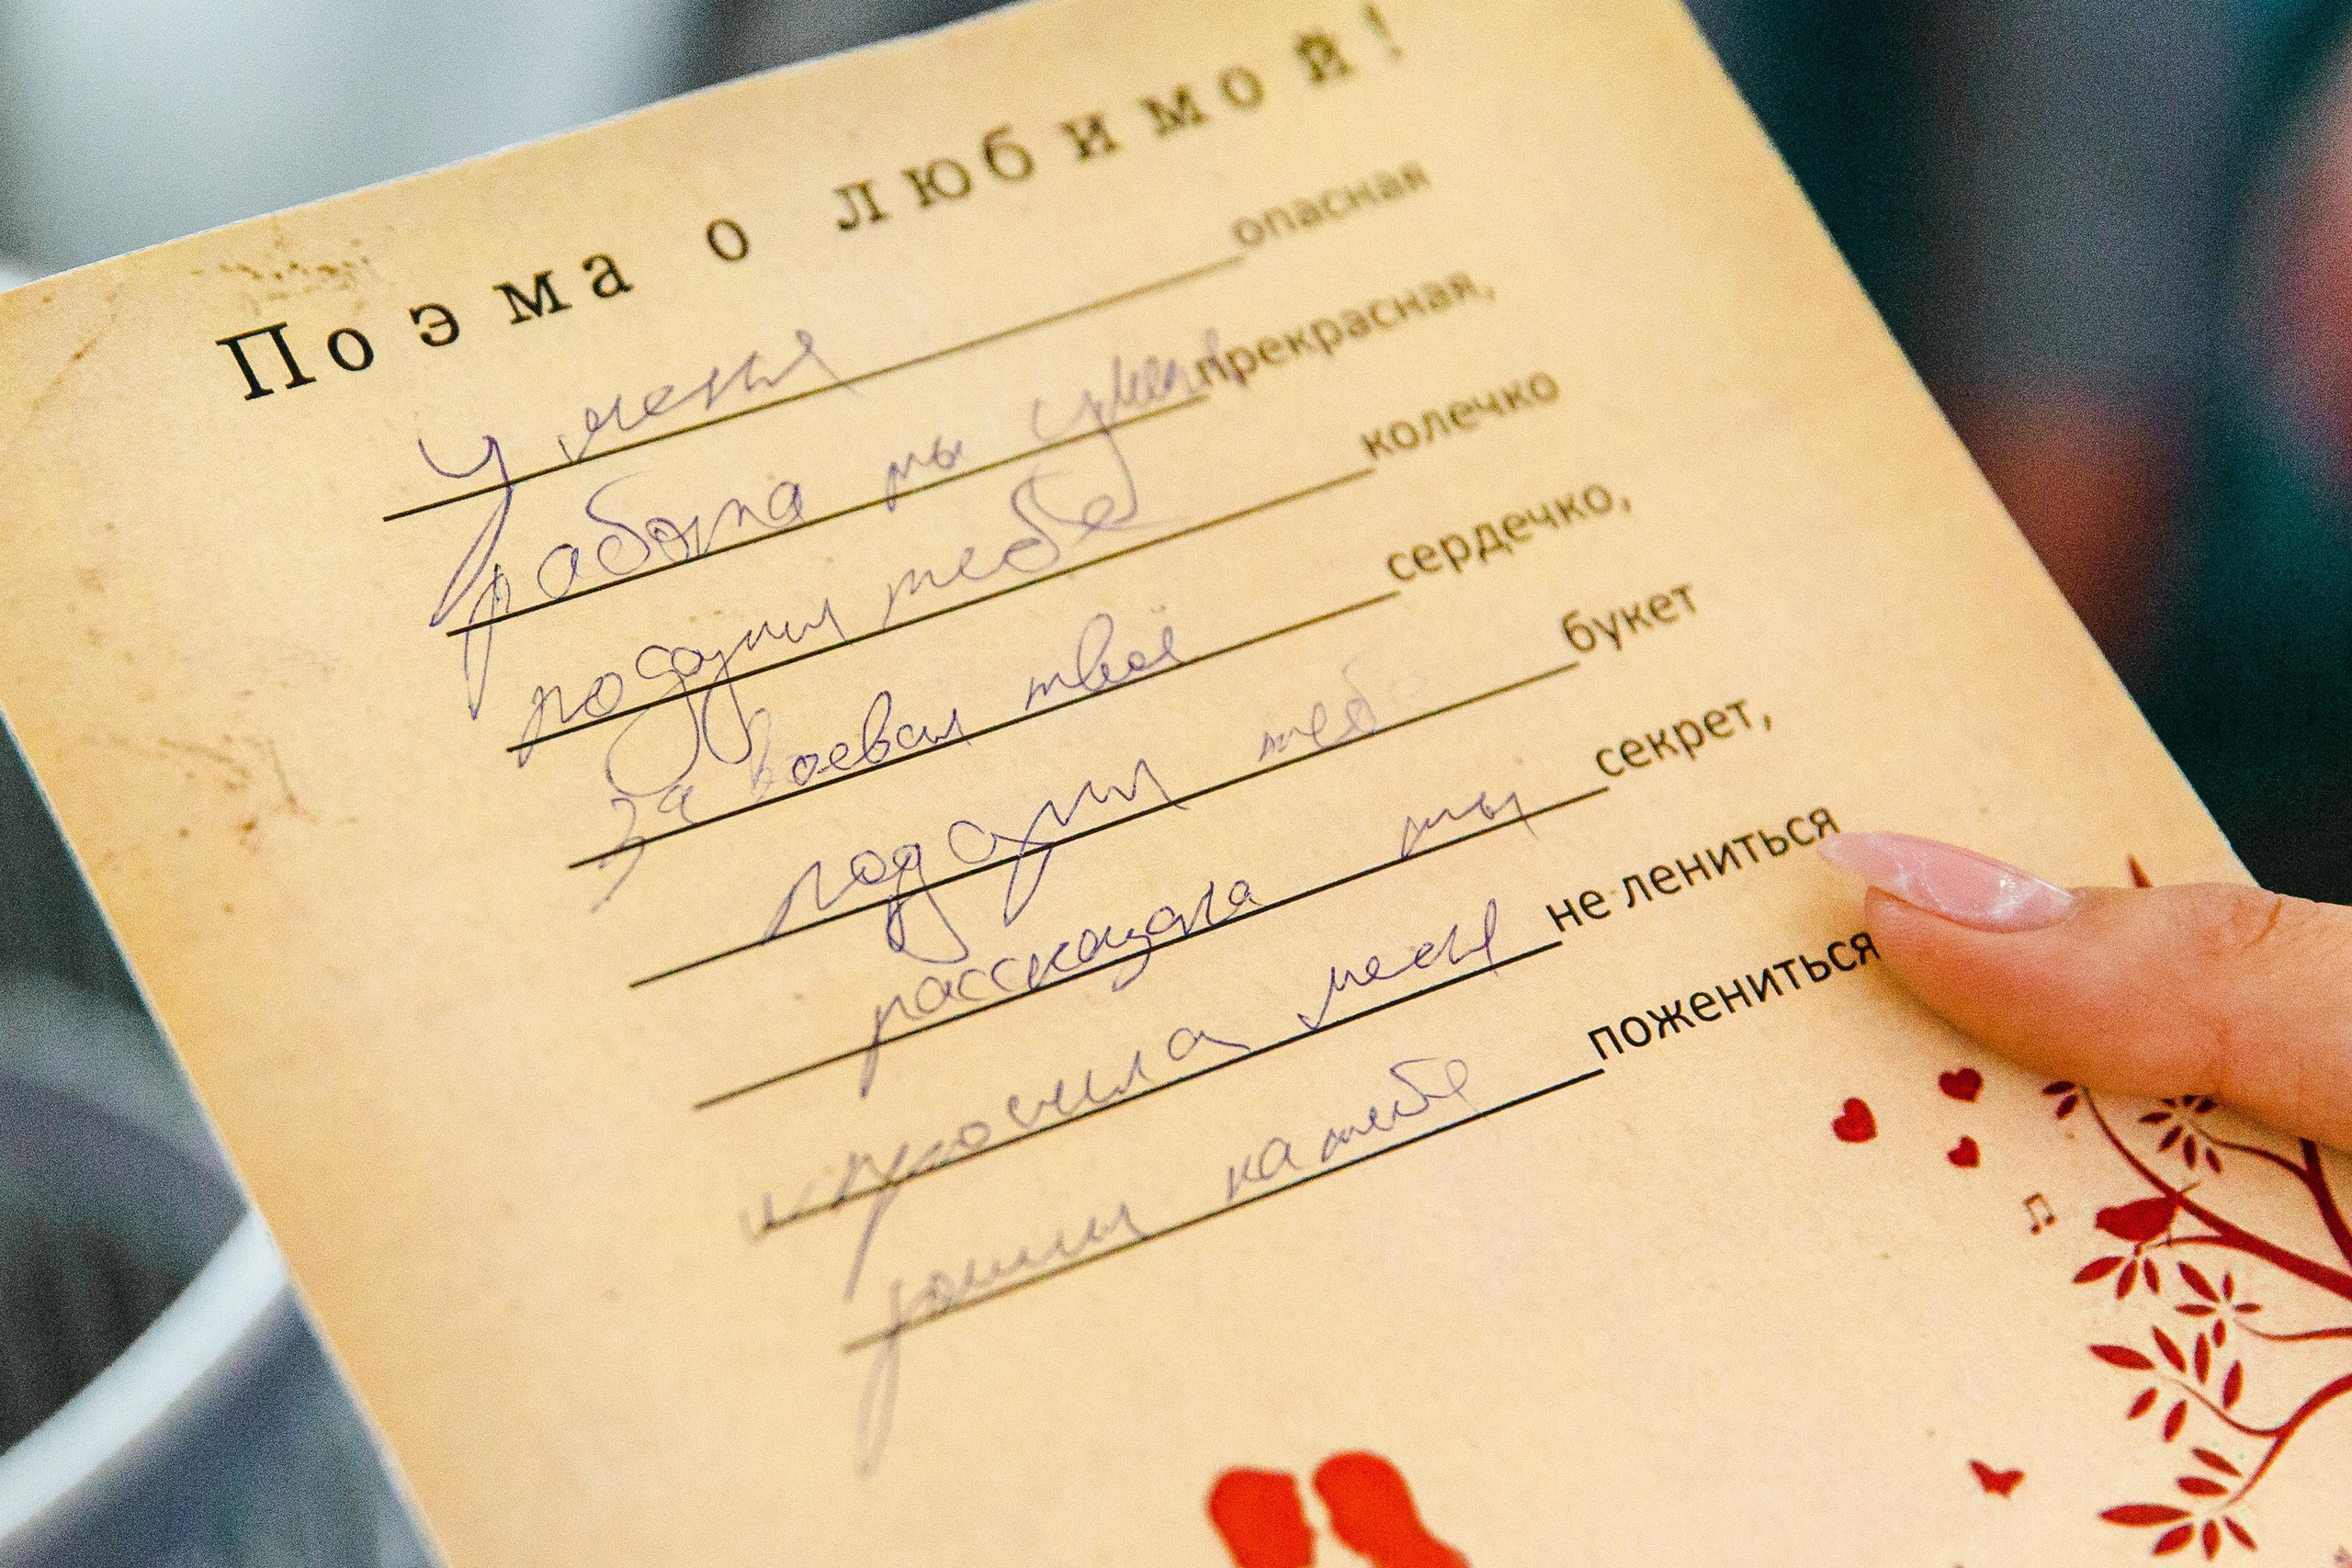 Поэма о любимой!
у меня опасная
работа ты у меня прекрасная,
подарил тебе колечко
завоевал твоё сердечко,
подарил тебе букет
рассказала ты секрет,
и просила меня не лениться
решил на тебе пожениться